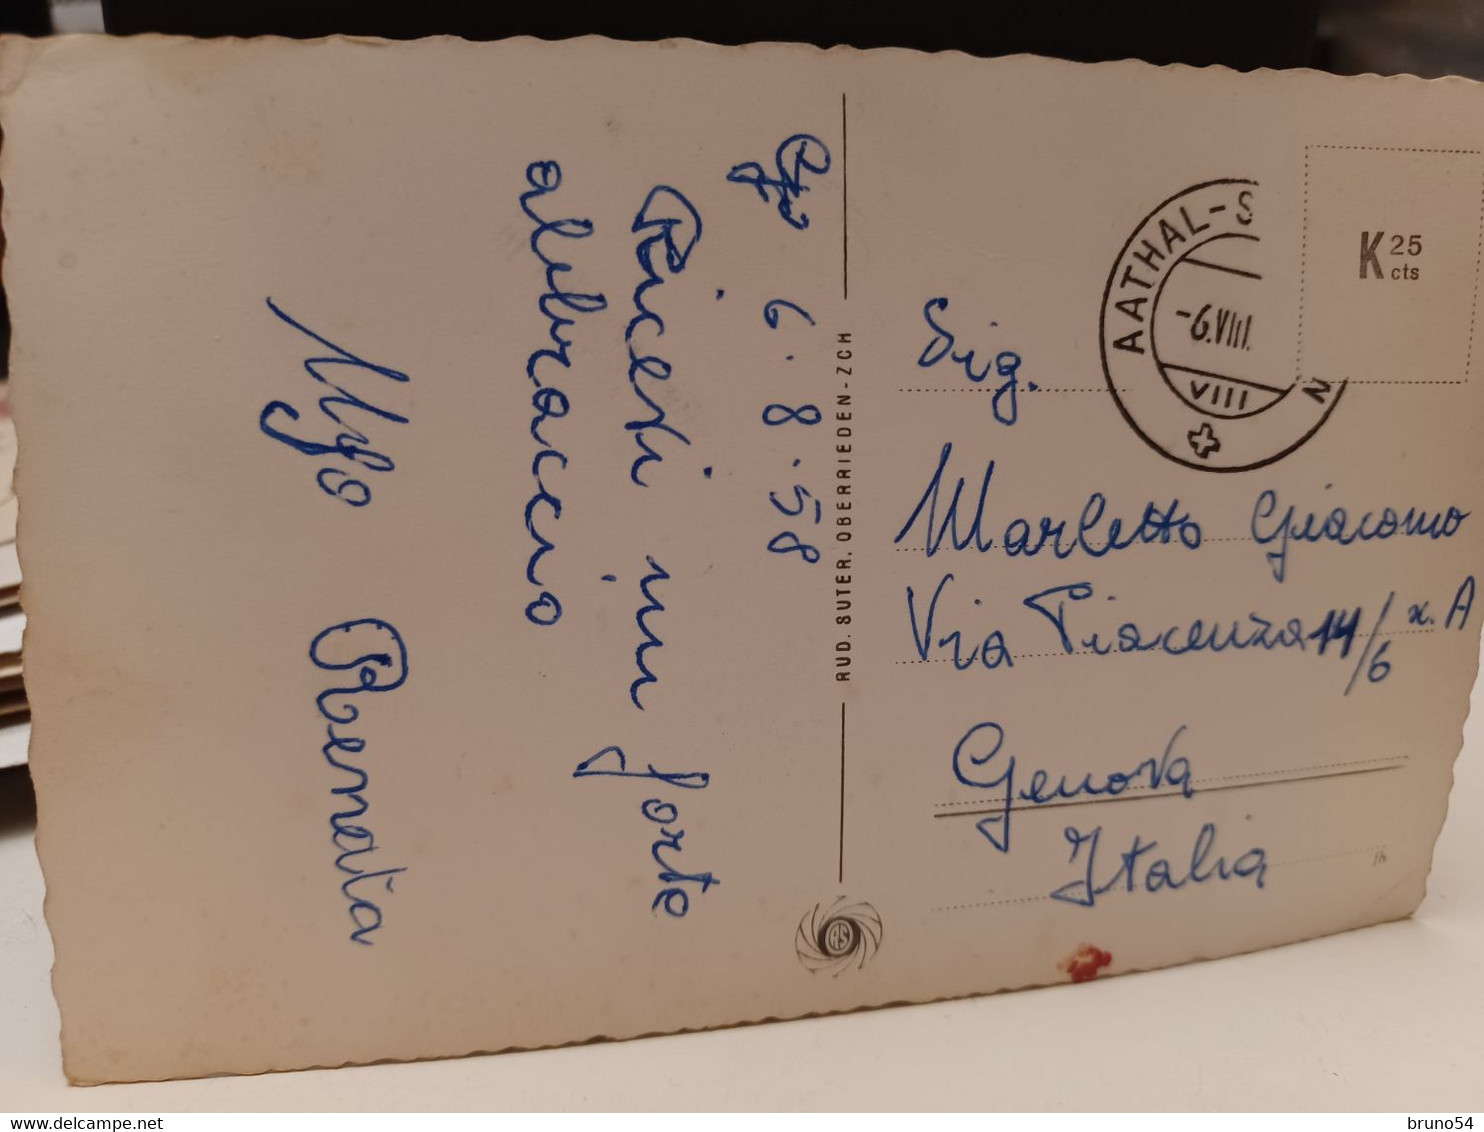 6.8.58
Ricevi un forte
abbraccio
Ugo Renata
RUD. SUTER. OBERRIEDEN-ZCH
RS
AATHAL-S
-6.VIII.
VIII
K 25
cts
Sig.
Marletto Giacomo
Via Piacenza 14/6 x. A
Genova
Italia
bruno54